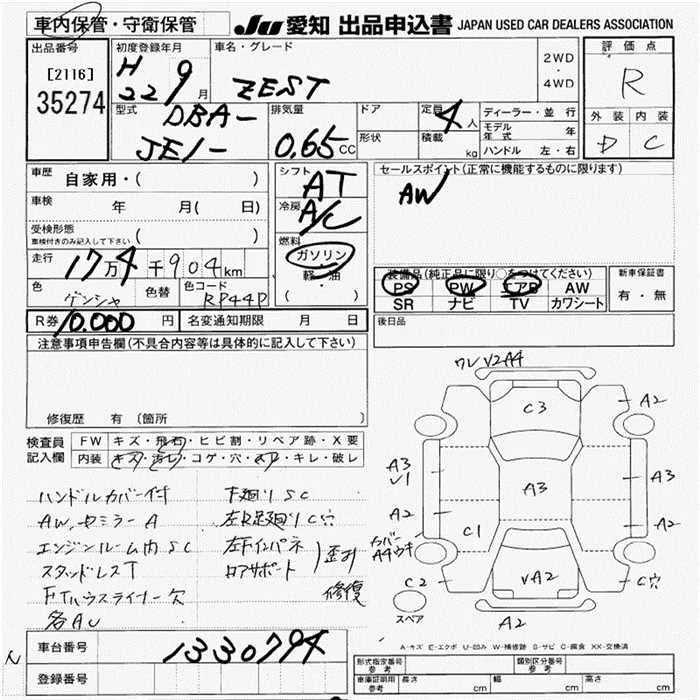 車内保管・守衛保管 JU 愛知 出品申込書 JAPAN USED CAR DEALERS ASSOCIATION
出品番号 初度登録年月 車名・グレード 2WD・4WD 評価点
[2116] H 22 9月 ZEST R
35274
型式 DBA- 排気量 ドア 定員 4人 ディーラー・並行 外装 内装
JE1- 0.65CC 形状 積載 kg モデル年式 年 D C
ハンドル 左・右
車歴 自家用・( ) シフト AT セールスポイント(正常に機能するものに限ります)
車検 年 月(日) 冷房 A/C AW
受検形態 車検付きのみ記入して下さい ( ) 燃料 ガソリン
走行 17万4千904km 軽・油
色 ゲンシャ 色替 色コード RP44P ( )
装備品(純正品に限り○をつけてください) 新車保証書
PS PW エアB AW 有・無
SR ナビ TV カワシート
R券 10,000円 名変通知期限 月 日 後日品
注意事項申告欄(不具合内容等は具体的に記入して下さい)
修復歴 有 (箇所
検査員記入欄 FW キズ・飛石・ヒビ割・リペア跡・X要
内装 キズ・汚レ・コゲ・穴・キレ・破レ
ハンドルカバー付 下廻りSC
AW、ミラーA 左R足廻りC穴
エンジンルーム内SC 左Fインパネ
スタッドレスT ロアサポート 歪み
FTハウスライナー欠 修復
各AU
ワレ V2A4
C3 A2
A3 V1 A3 A3
A2 A2
C1
カバー A4ウキ
C2 VA2 C穴
スペア A2
A-キズ E-エクボ U-凹み W-補修跡 S-サビ C-腐食 XX-交換済
車台番号 1330794
登録番号
形式指定番号 参考 類別区分番号 参考
車庫証明用 参考 長さ cm 幅 cm 高さ cm